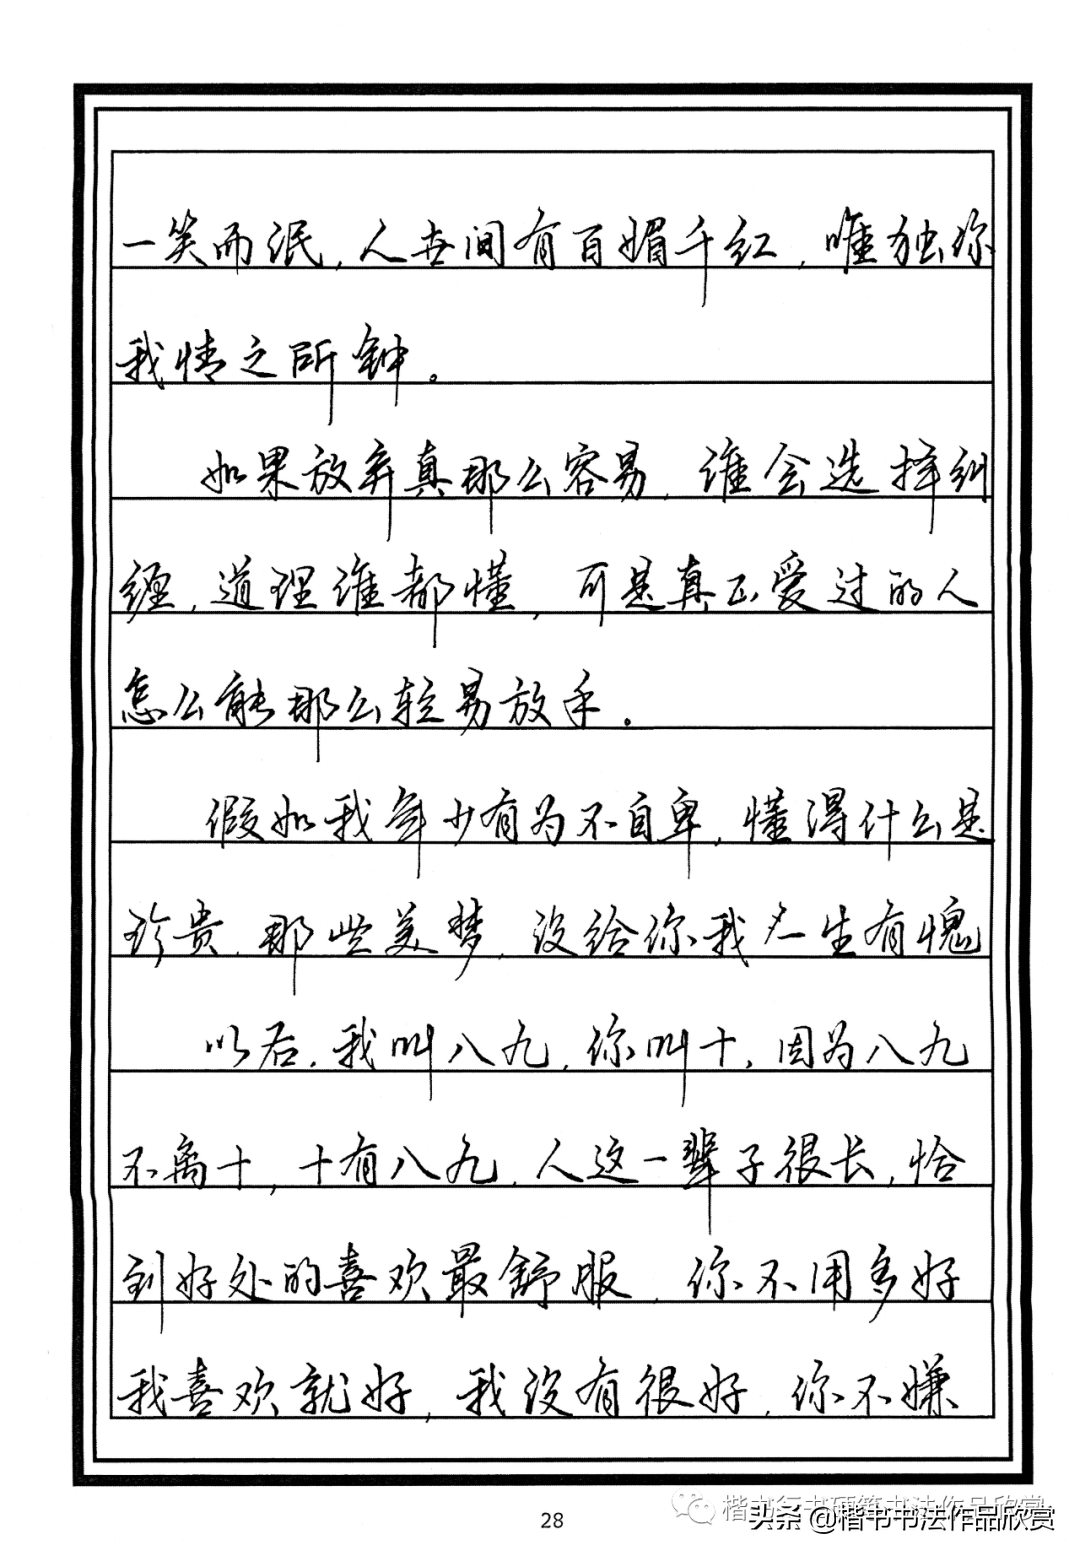 一笑而泯，人世间有百媚千红，唯独你
我情之所钟。
如果放弃真那么容易，谁会选择纠
缠，道理谁都懂，可是真正爱过的人
怎么能那么轻易放手。
假如我年少有为不自卑，懂得什么是
珍贵，那些美梦，没给你我一生有愧
以后，我叫八九，你叫十，因为八九
不离十，十有八九，人这一辈子很长，恰
到好处的喜欢最舒服，你不用多好
我喜欢就好，我没有很好，你不嫌
28
楷书行书硬笔书法作品欣赏
头条@楷书书法作品欣赏